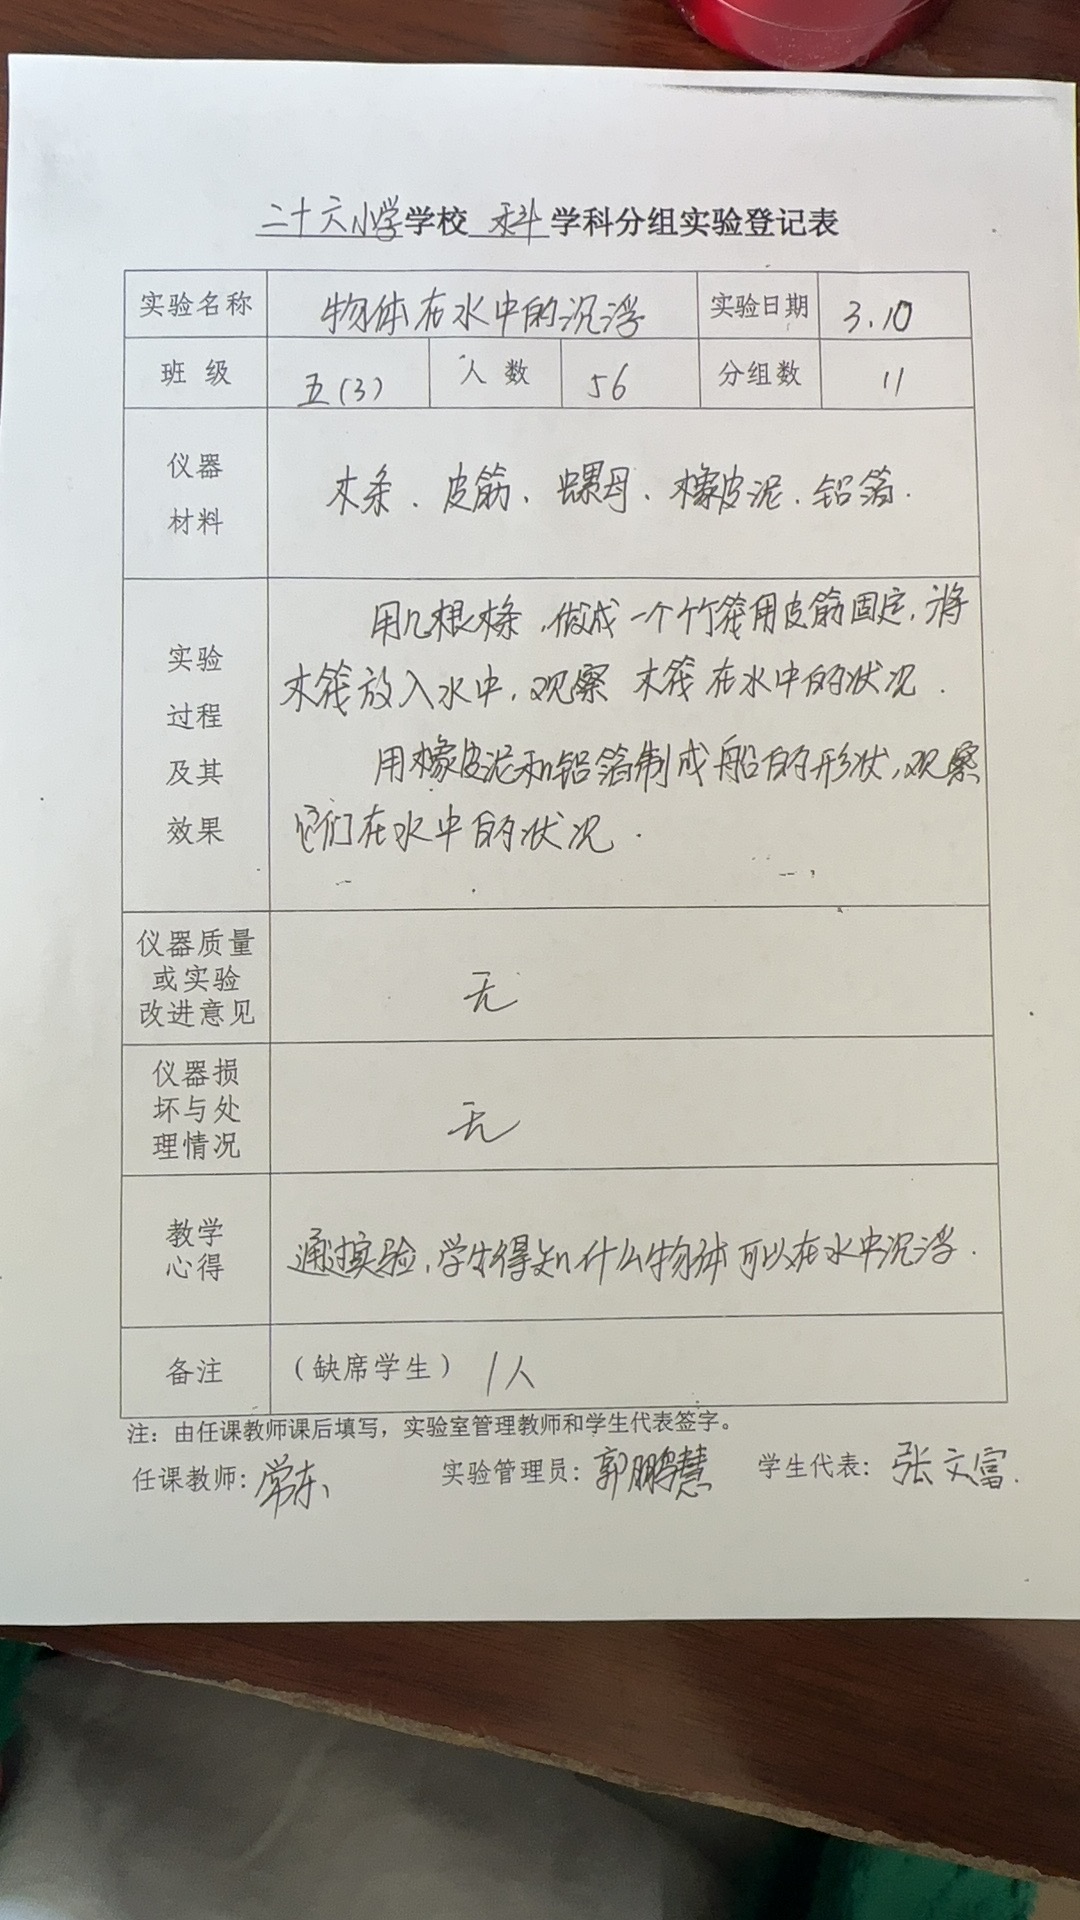 二十六小学学校 科 学科分组实验登记表
实验名称 物体在水中的沉浮 实验日期 3.10
班 级 五(3) 人 数 56 分组数 11
仪器
材料
木条、皮筋、螺母、橡皮泥、铝箔.
实验
过程
及其
效果
用几根木条,做成一个竹筏用皮筋固定,将
木筏放入水中,观察 木筏在水中的状况.
用橡皮泥和铝箔制成船的形状,观察
它们在水中的状况.
仪器质量
或实验
改进意见
无
仪器损
坏与处
理情况
无
教学
心得
通过实验,学生得知什么物体可以在水中沉浮.
备注 (缺席学生) 1人
注:由任课教师课后填写,实验室管理教师和学生代表签字。
任课教师:常东 实验管理员:郭鹏慧 学生代表:张文富.